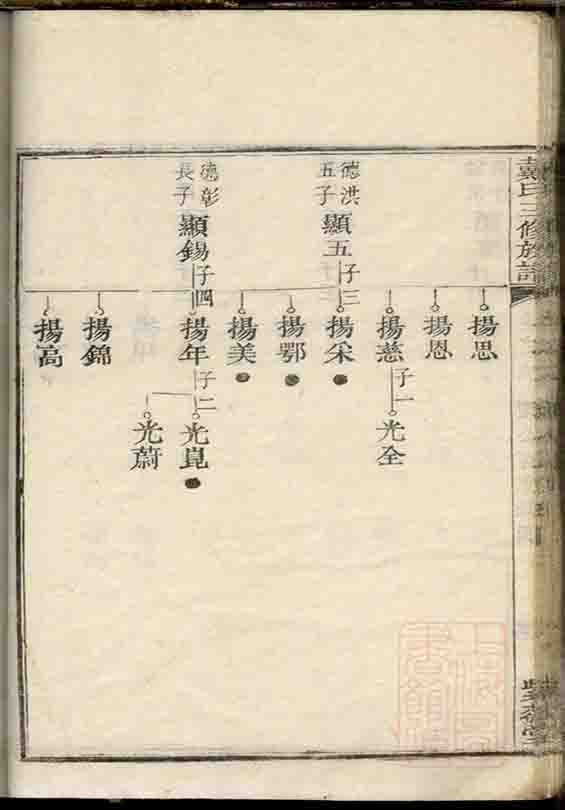 戴氏三修族譜
揚思
揚恩
揚慈
子一
光全
德洪
五子
顯五
子三
揚采
揚鄂
揚美
德彰
長子
顯錫
子四
揚年
子二
光崑
光蔚
揚錦
揚高